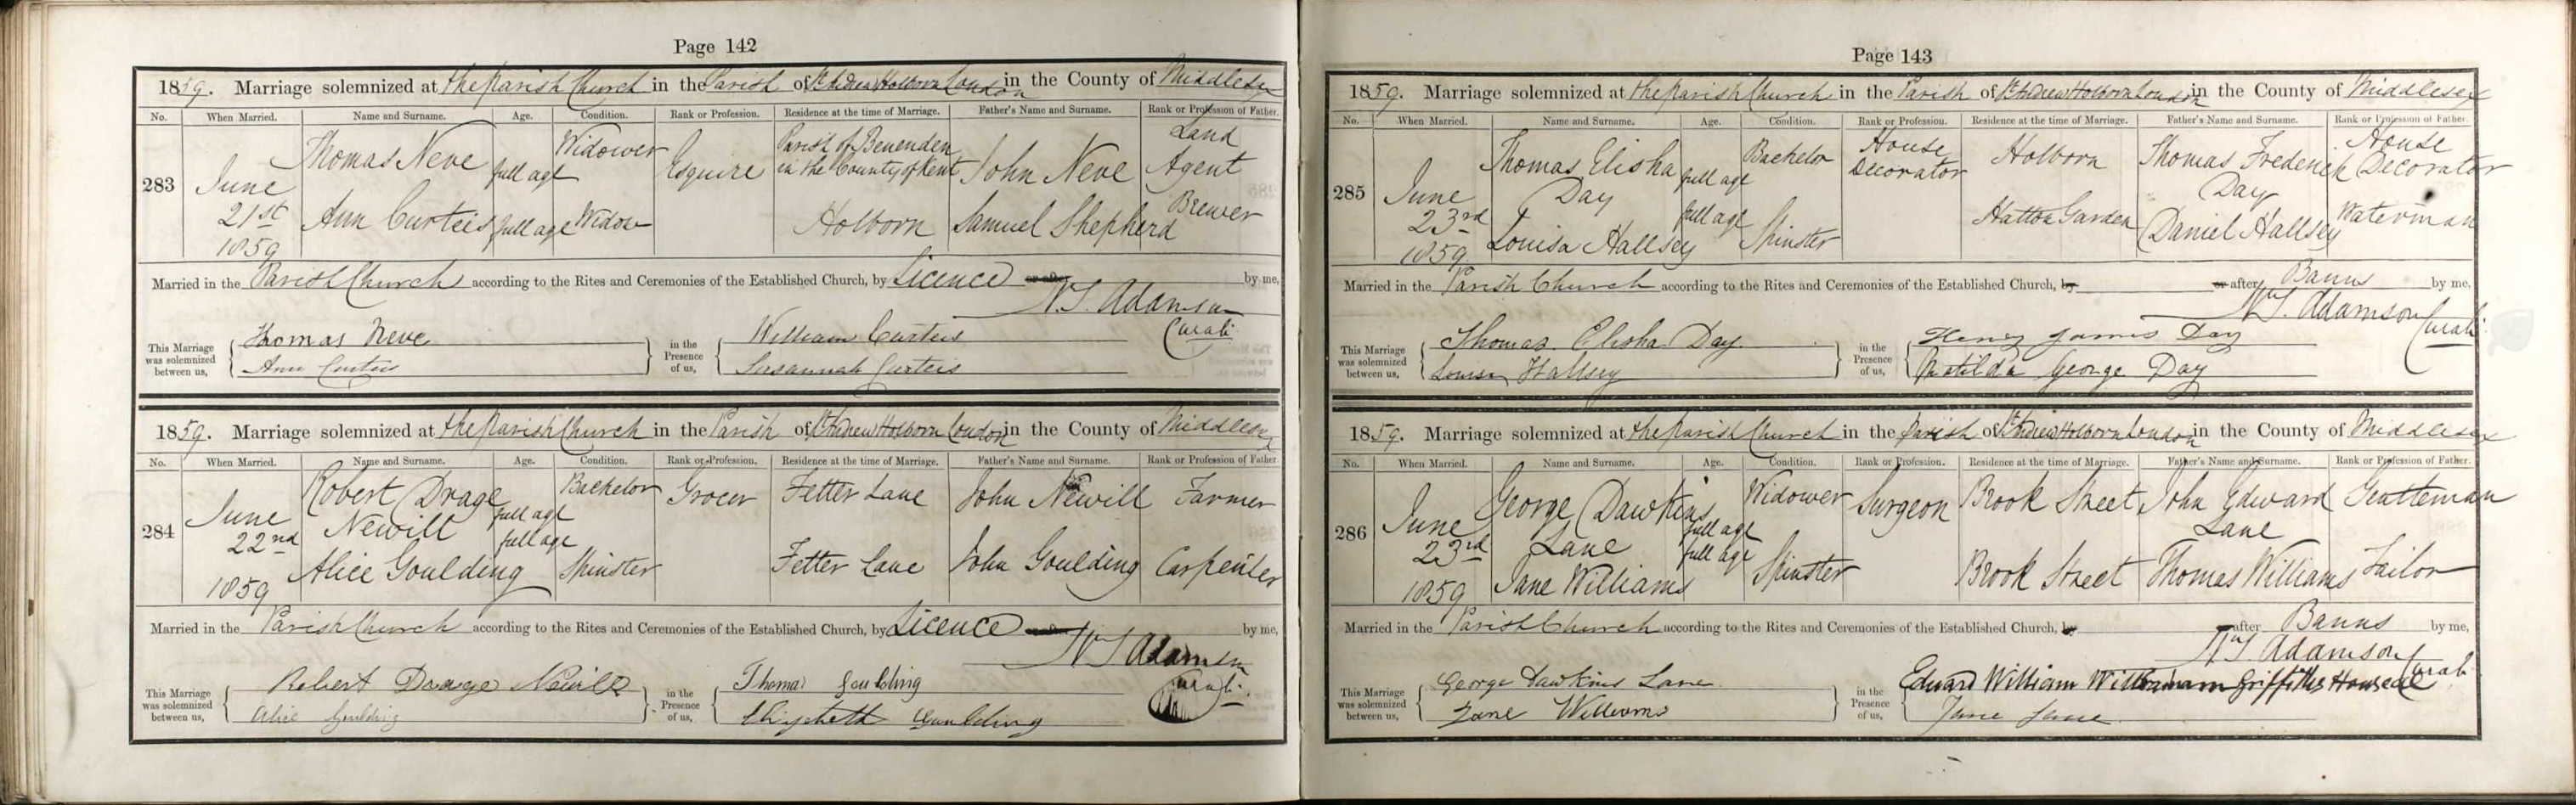 Page 142
1859. Marriage solemnized at the Parish Church in the Parish of St Andrew Holborn London in the County of Middlesex
No. When Married. Name and Surname. Age. Condition. Rank or Profession. Residence at the time of Marriage. Father's Name and Surname. Rank or Profession of Father.
283 June 21st 1859
Thomas Neve full age Widower Esquire Parish of Benenden in the County of Kent John Neve Land Agent
Ann Curteis full age Widow Holborn Samuel Shepherd Brewer
Married in the Parish Church according to the Rites and Ceremonies of the Established Church, by Licence or after by me,
W.J. Adamson
Curate
This Marriage was solemnized between us, Thomas Neve Ann Curteis
in the Presence of us, William Curteis Susannah Curteis
1859. Marriage solemnized at the Parish Church in the Parish of St Andrew Holborn London in the County of Middlesex
No. When Married. Name and Surname. Age. Condition. Rank or Profession. Residence at the time of Marriage. Father's Name and Surname. Rank or Profession of Father.
284 June 22nd 1859
Robert Drage Newill full age Bachelor Grocer Fetter Lane John Newill Farmer
Alice Goulding full age Spinster Fetter Lane John Goulding Carpenter
Married in the Parish Church according to the Rites and Ceremonies of the Established Church, by Licence by me,
W J Adamson
Curate
This Marriage was solemnized between us, Robert Drage Newill Alice Goulding
in the Presence of us, Thomas Goulding Elizabeth Goulding
Page 143
1859. Marriage solemnized at the Parish Church in the Parish of St Andrew Holborn London in the County of Middlesex
No. When Married. Name and Surname. Age. Condition. Rank or Profession. Residence at the time of Marriage. Father's Name and Surname. Rank or Profession of Father.
285 June 23rd 1859
Thomas Elisha Day full age Bachelor House Decorator Holborn Thomas Frederick Day House Decorator
Louisa Hallsey full age Spinster Hatton Garden Daniel Hallsey Waterman
Married in the Parish Church according to the Rites and Ceremonies of the Established Church, by or after Banns by me,
Wm J. Adamson Curate
This Marriage was solemnized between us, Thomas Elisha Day Louisa Hallsey
in the Presence of us, Henry James Day Matilda George Day
1859. Marriage solemnized at the Parish Church in the Parish of St Andrew Holborn London in the County of Middlesex
No. When Married. Name and Surname. Age. Condition. Rank or Profession. Residence at the time of Marriage. Father's Name and Surname. Rank or Profession of Father.
286 June 23rd 1859
George Dawkins Lane full age Widower Surgeon Brook Street John Edward Lane Gentleman
Jane Williams full age Spinster Brook Street Thomas Williams Tailor
Married in the Parish Church according to the Rites and Ceremonies of the Established Church, by after Banns by me,
Wm J Adamson Curate
This Marriage was solemnized between us, George Dawkins Lane Jane Williams
in the Presence of us, Edward William Griffiths Jane Lane